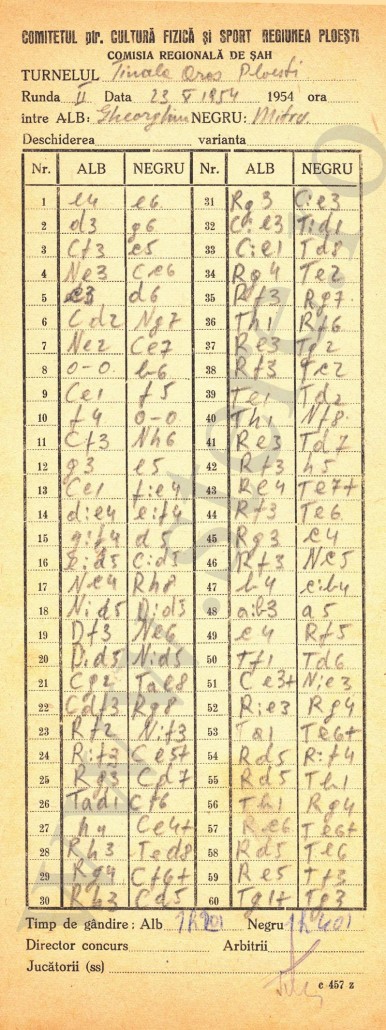 COMITETUL ptr. CULTURĂ FIZICĂ şi SPORT REGIUNEA PLOEŞTI
COMISIA REGIONALĂ DE ŞAH
TURNELUL Finala Oras Ploesti
Runda II Data 23 X 1954 1954 ora
între ALB: Gheorghiu NEGRU: Mitra
Deschiderea varianta
Nr. ALB NEGRU Nr. ALB NEGRU
1 e4 e6 31 Rg3 C:e3
2 d3 g6 32 C:e3 T:d1
3 Cf3 c5 33 C:e1 Td8
4 Ne3 Cc6 34 Rg4 Te2
5 c3 d6 35 Rf3 Rg7
6 Cd2 Ng7 36 Th1 Rf6
7 Ne2 Ce7 37 Re3 Tg2
8 o-o b6 38 Rf3 Tc2
9 Ce1 f5 39 Te1 Td2
10 f4 o-o 40 Th1 Nf8
11 Cf3 Nh6 41 Re3 Td7
12 g3 e5 42 Rf3 h5
13 Ce1 f:e4 43 Re4 Te7+
14 d:e4 e:f4 44 Rf3 Te6
15 g:f4 d5 45 Rg3 c4
16 e:d5 C:d5 46 Rf3 Nc5
17 Nc4 Rh8 47 b4 c:b4
18 N:d5 D:d5 48 a:b3 a5
19 Df3 Ne6 49 c4 Rf5
20 D:d5 N:d5 50 Tf1 Td6
21 Cg2 Tae8 51 Ce3+ N:e3
22 Cdf3 Rg8 52 R:e3 Rg4
23 Rf2 N:f3 53 Ta1 Te6+
24 R:f3 Ce5+ 54 Rd5 R:f4
25 Rg3 Cd7 55 Rd5 Th1
26 Tad1 Cf6 56 Th1 Rg4
27 h4 Ce4+ 57 Rc6 Te6+
28 Rh3 Ted8 58 Rd5 Te6
29 Rg4 Cf6+ 59 Re5 Tf3
30 Rh3 Cd5 60 Tg1+ Tg3
Timp de gândire: Alb 1h20' Negru 1h40'
Director concurs Arbitrii
Jucătorii (ss)
c 457 z